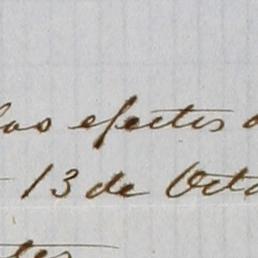 los efectos
13 de Octu